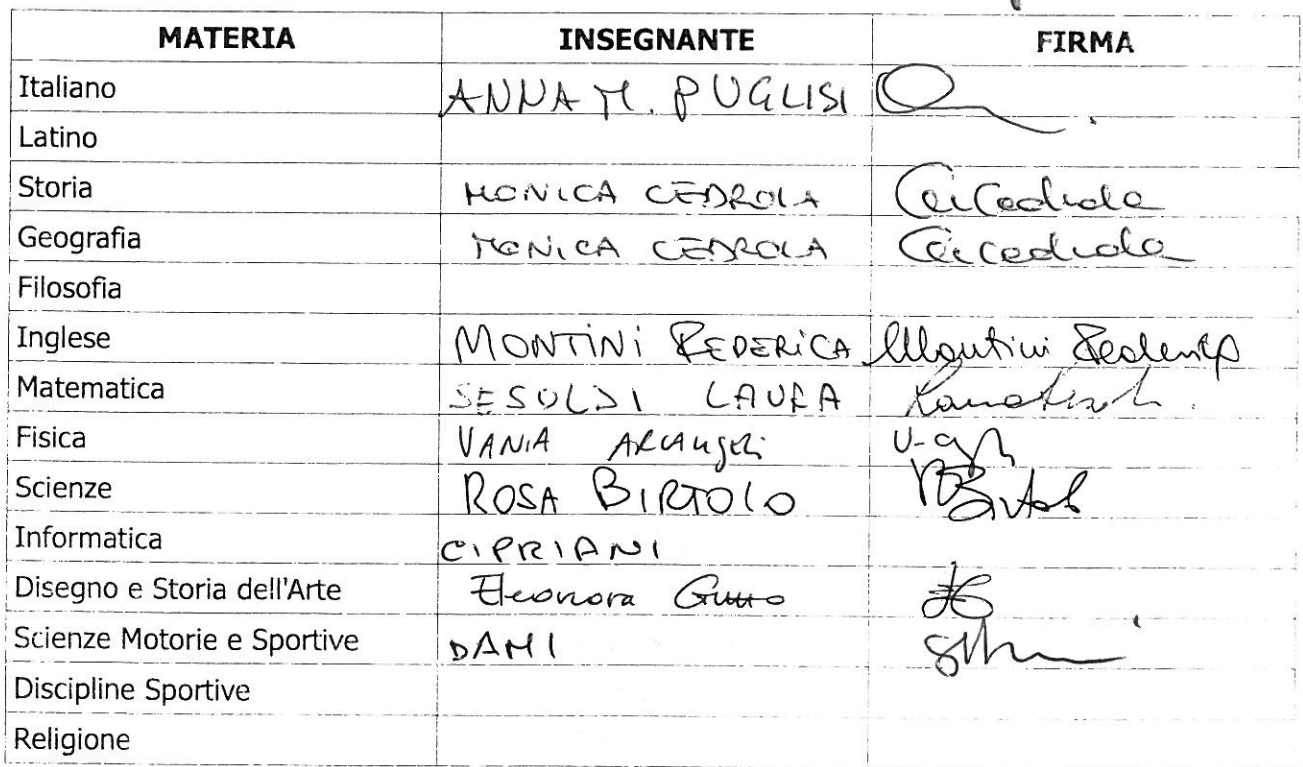 MATERIA INSEGNANTE FIRMA
Italiano ANNA M. PUGLISI
Latino
Storia MONICA CEDROLA
Geografia MONICA CEDROLA
Filosofia
Inglese MONTINI FEDERICA Montini Federica
Matematica SESOLDI LAURA
Fisica VANIA ARCANGELI
Scienze ROSA BIRTOLO
Informatica CIPRIANI
Disegno e Storia dell'Arte Eleonora
Scienze Motorie e Sportive DAMI
Discipline Sportive
Religione